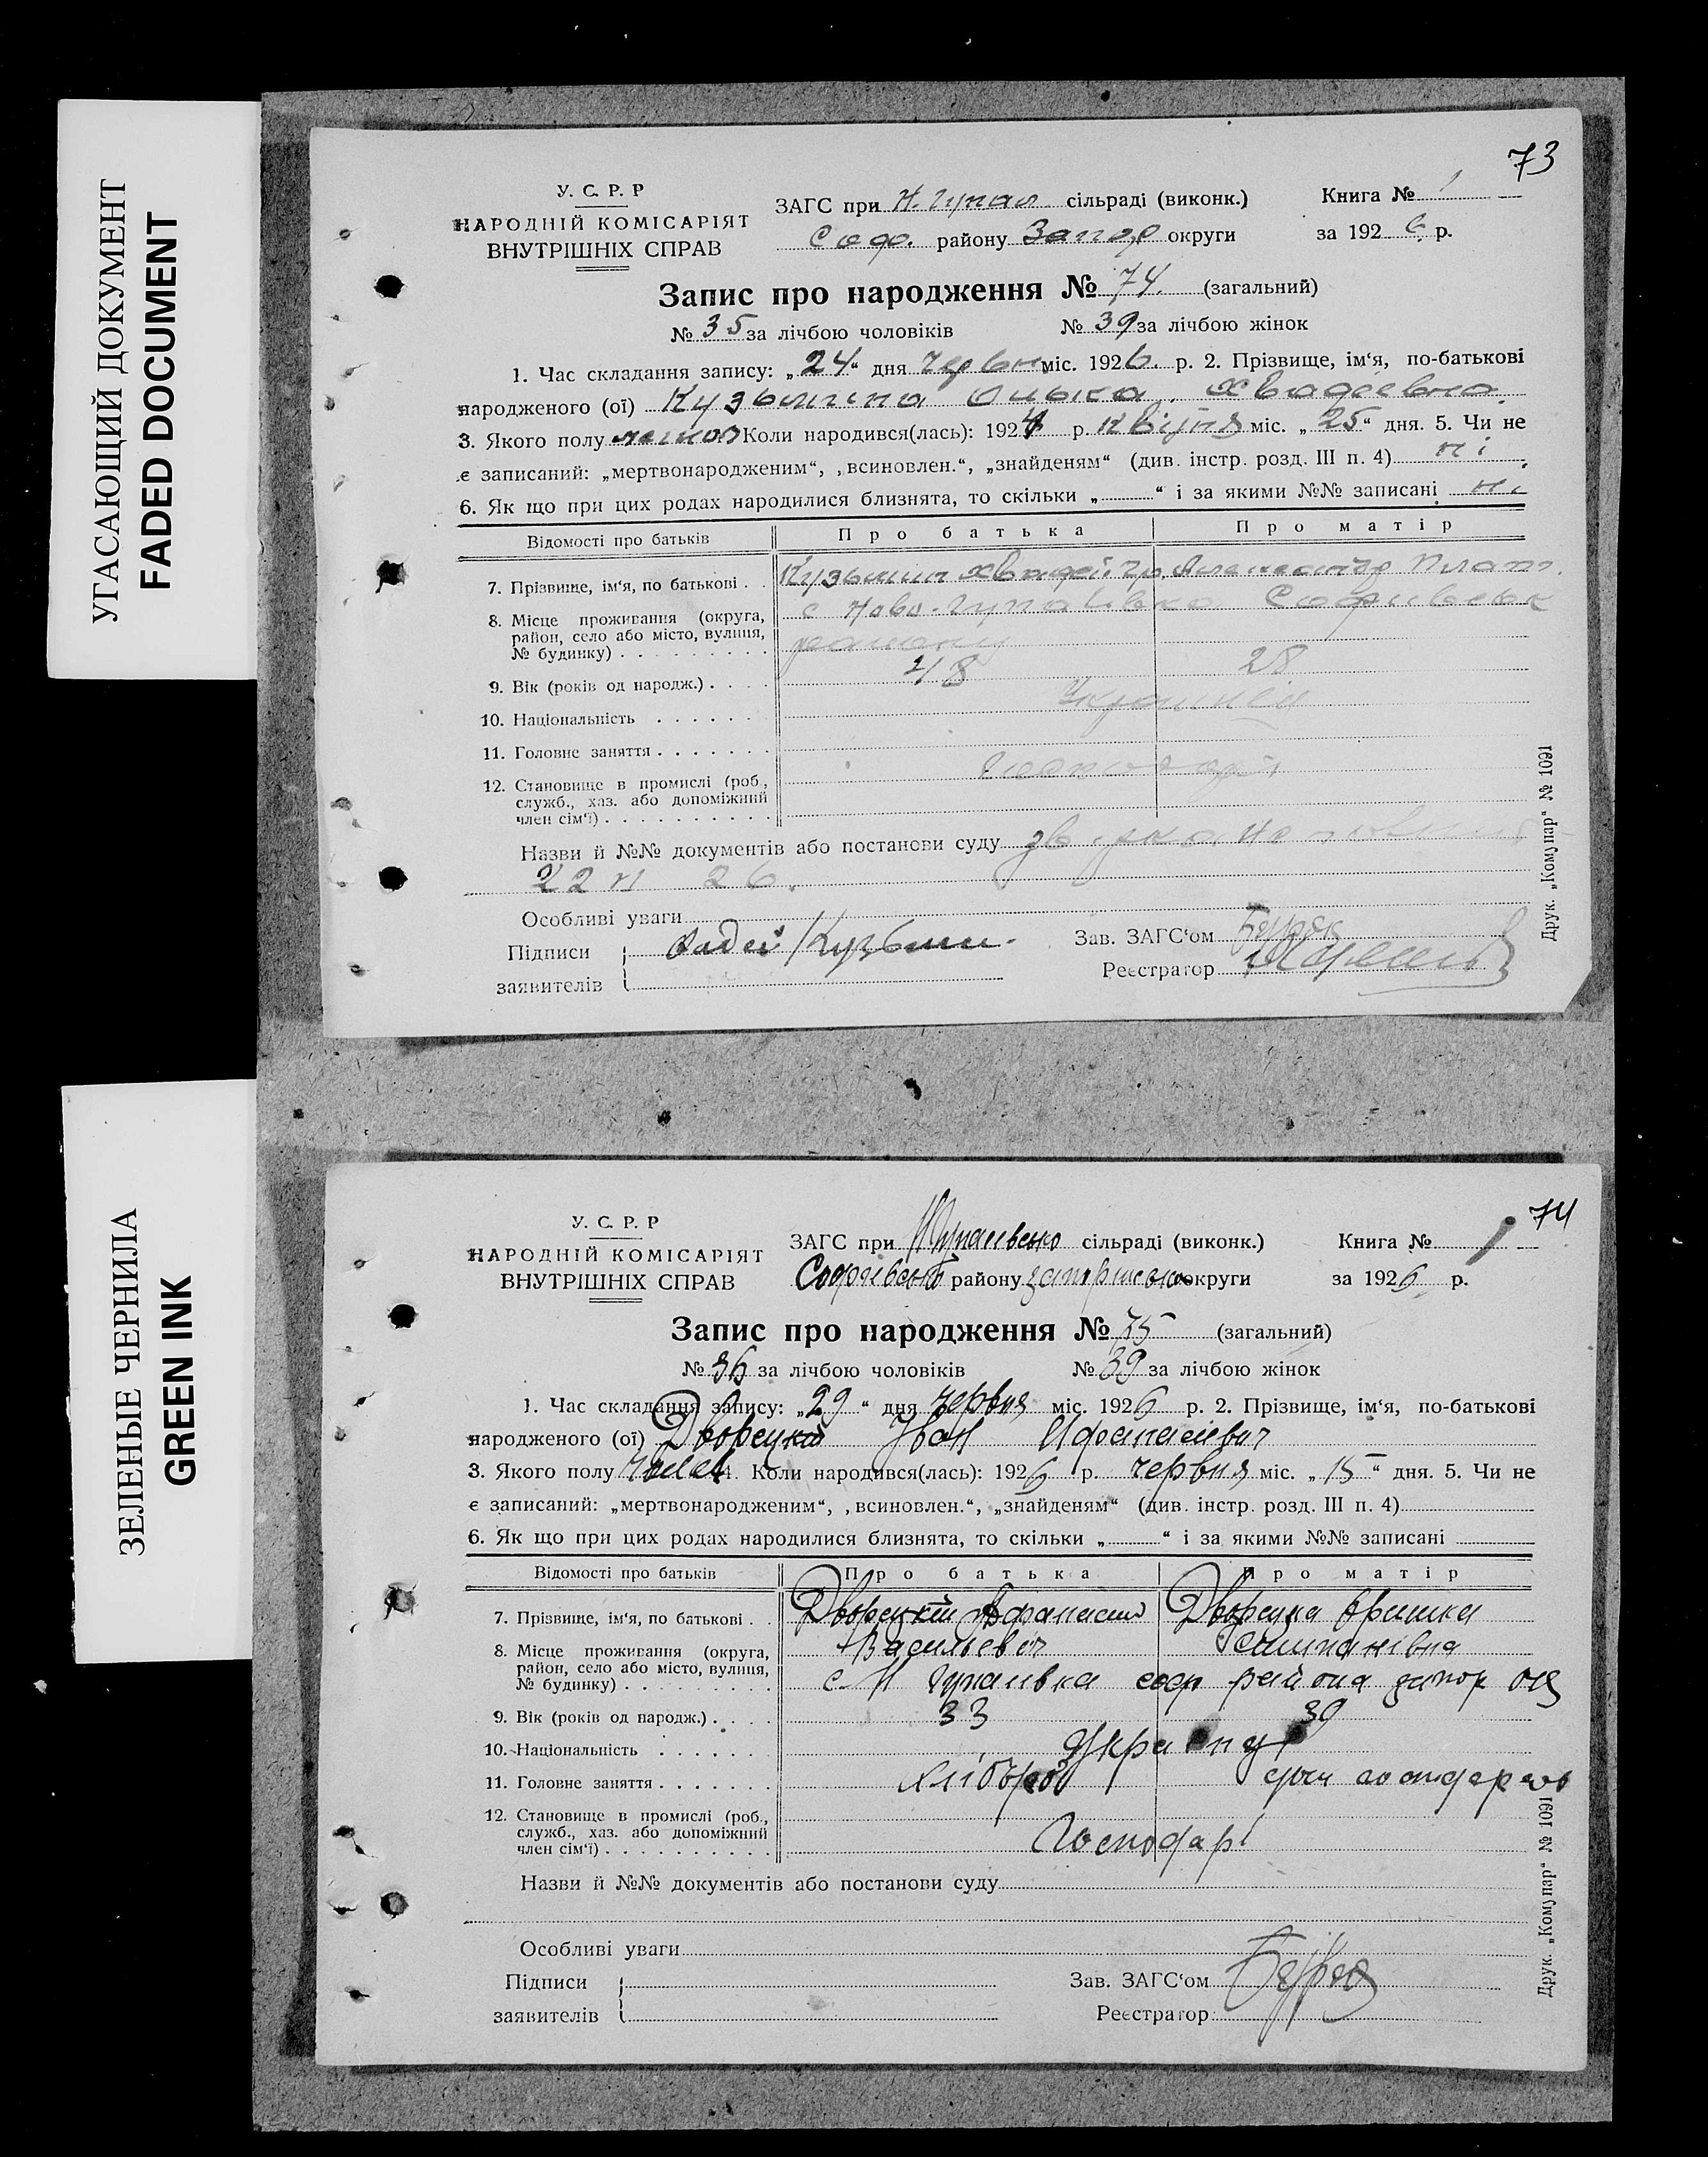 УГАСАЮЩИЙ ДОКУМЕНТ
FADED DOCUMENT
73
У. С. Р. Р
НАРОДНІЙ КОМІСАРІЯТ
ВНУТРІШНІХ СПРАВ
ЗАГС при Н. Гупал сільраді (виконк.)
Соф. району Запор округи
Книга № 1
за 1926 р.
Запис про народження № 74. (загальний)
№ 35 за лічбою чоловіків № 39 за лічбою жінок
1. Час складання запису: „24“ дня червн міс. 1926. р. 2. Прізвище, ім‘я, по-батькові
народженого (ої) Кузьмина Хвадеевна.
3. Якого полу Коли народився(лась): 192 р. квітня міс. „25“ дня. 5. Чи не
є записаний: „мертвонародженим“, „всиновлен.“, „знайденям“ (див. інстр. розд. III п. 4) ні
6. Як що при цих родах народилися близнята, то скільки „ “ і за якими №№ записані ні
Відомості про батьків Про батька Про матір
7. Прізвище, ім‘я, по батькові . . Кузьмин Хвадей
8. Місце проживання (округа, район, село або місто, вулиця, № будинку) . . . . . . . . . с Ново-Гупалівка Софиевськ
району
9. Вік (років од народж.) . . . . 48 28
10. Національність . . . . . .
11. Головне заняття . . . . . . .
12. Становище в промислі (роб., служб., хаз. або допоміжний член сім‘ї) . . . . . . . . . .
Назви й №№ документів або постанови суду
22 VI 26.
Особливі уваги
Підписи заявителів Фадей Кузьмин.
Зав. ЗАГС‘ом
Реєстратор
Друк. „Комунар“ № 1091
ЗЕЛЕНЫЕ ЧЕРНИЛА
GREEN INK
74
У. С. Р. Р
НАРОДНІЙ КОМІСАРІЯТ
ВНУТРІШНІХ СПРАВ
ЗАГС при сільраді (виконк.)
Софіевської району округи
Книга № 1
за 1926 р.
Запис про народження № 75 (загальний)
№ 36 за лічбою чоловіків № 39 за лічбою жінок
1. Час складання запису: „29“ дня червня міс. 1926 р. 2. Прізвище, ім‘я, по-батькові
народженого (ої) Дворецкий Іван Афанасієвич
3. Якого полу 4. Коли народився(лась): 1926 р. червня міс. „15“ дня. 5. Чи не
є записаний: „мертвонародженим“, „всиновлен.“, „знайденям“ (див. інстр. розд. III п. 4)
6. Як що при цих родах народилися близнята, то скільки „ “ і за якими №№ записані
Відомості про батьків Про батька Про матір
7. Прізвище, ім‘я, по батькові . . Дворецкий Афанасий Васильевич Дворецка
8. Місце проживання (округа, район, село або місто, вулиця, № будинку) . . . . . . . . . с Н Гупаливка соф района запор
9. Вік (років од народж.) . . . . 33 39
10. Національність . . . . . .
11. Головне заняття . . . . . . . хлібороб
12. Становище в промислі (роб., служб., хаз. або допоміжний член сім‘ї) . . . . . . . . . . Господарі
Назви й №№ документів або постанови суду
Особливі уваги
Підписи заявителів
Зав. ЗАГС‘ом
Реєстратор
Друк. „Комунар“ № 1091